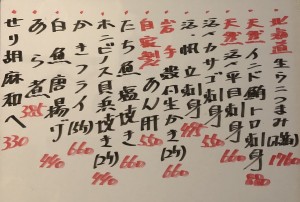 北海道生ウニ 1760
天然インド鮪トロ刺身 880
天然活平目刺身 660
カサゴ刺身
活帆立刺身
岩手 生かき 660
自家製あん肝 550
たち魚塩焼き 660
ホンビノス貝浜焼き 440
かきフライ 660
白魚唐揚げ 440
あら煮 385
せり胡麻和へ 330